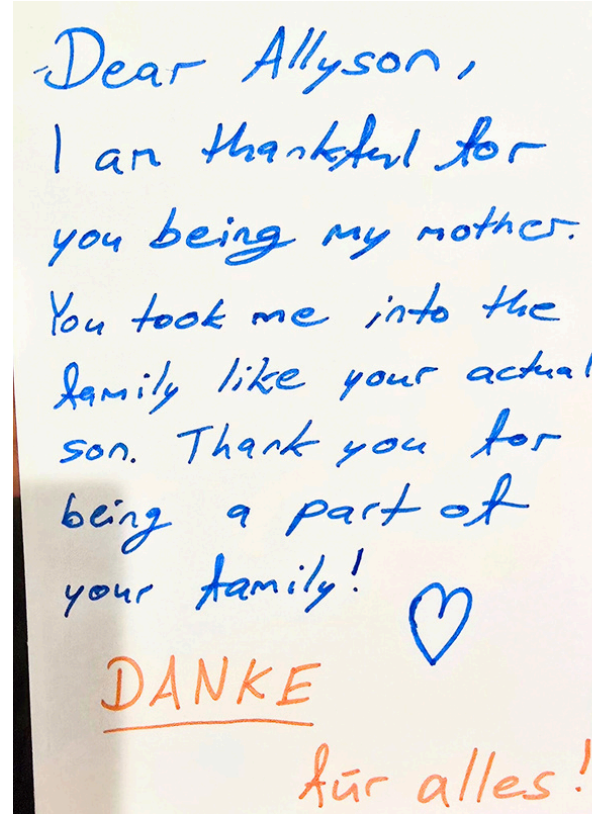 Dear Allyson,
I am thankful for
you being my mother.
You took me into the
family like your actual
son. Thank you for
being a part of
your family!
DANKE
für alles!